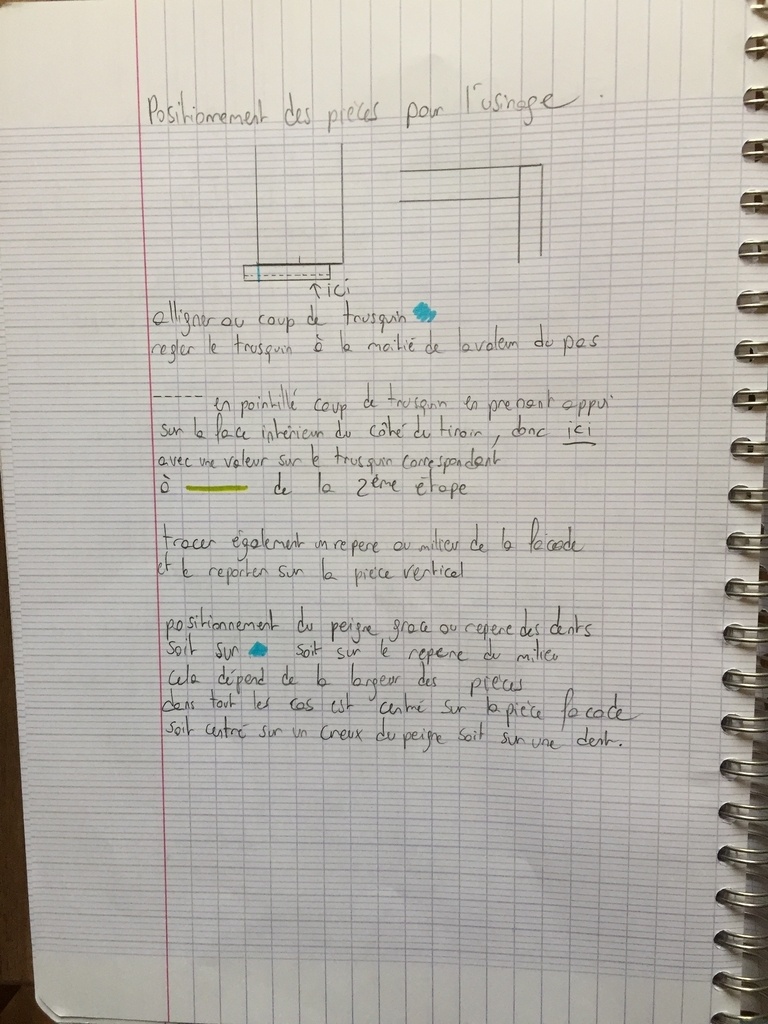 Positionnement des pièces pour l'usinage.
↑ici
alligner au coup de trusquin
regler le trusquin à la moitié de la valeur du pas
----- en pointillé coup de trusquin en prenant appui
sur la face intérieur du côté de tiroir, donc ici
avec une valeur sur le trusquin correspondant
à ____ de la 2ème étape
tracer également un repere au milieu de la facade
et le reporter sur la pièce vertical
positionnement du peigne grace au repere des dents
soit sur soit sur le repere du milieu
Cela dépend de la largeur des pièces
dans tout les cas est centré sur la pièce facade
soit centré sur un creux du peigne soit sur une dent.